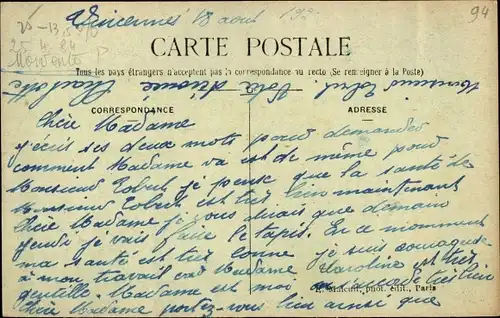 Vincennes 18 août
94
CARTE POSTALE
Tous les pays étrangers n'acceptent pas la correspondance au recto (Se renseigner à la Poste)
CORRESPONDANCE
ADRESSE
Chère Madame
j'écris ses deux mots pour demander
comment Madame va est de même pour
Monsieur je pense que la santé de
Monsieur est très bien maintenant
Chère Madame je vous dirais que demain
jeudi je vais faire le tapis. En ce moment
ma santé est très bonne je suis
à mon travail car Madame Caroline est très
gentille. Madame est moi très bien
phot. édit., Paris
Chère Madame portez-vous bien ainsi que